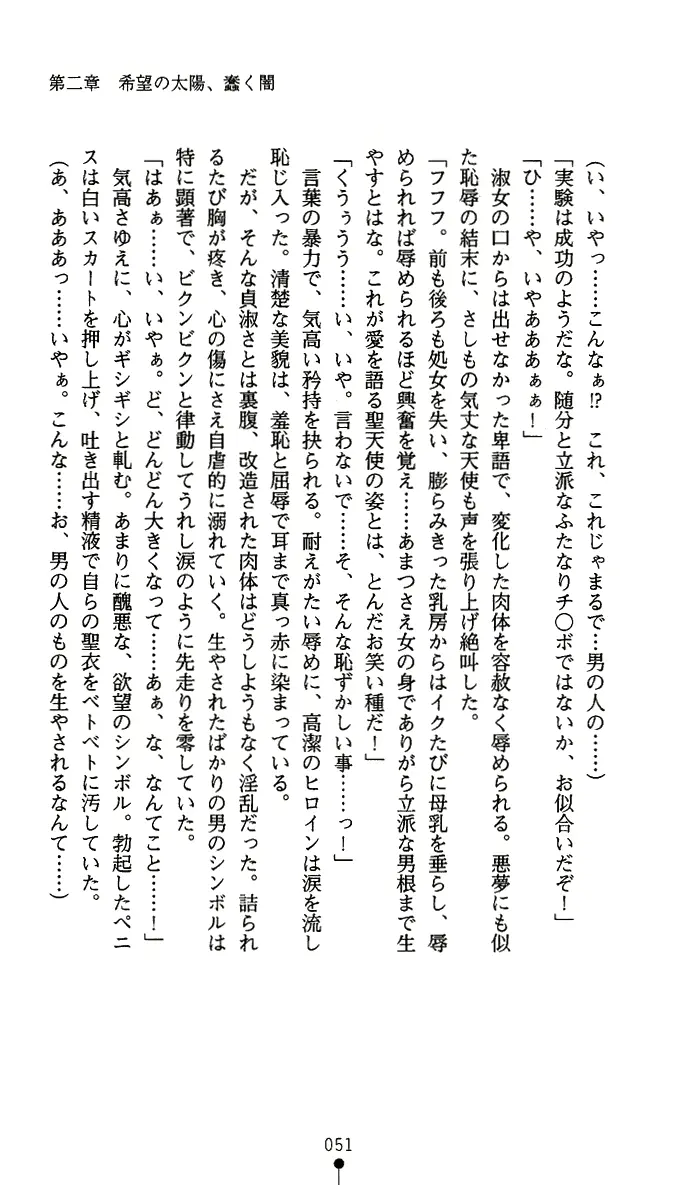 第二章　希望の太陽、蠢く闇
(い、いやっ……こんなぁ!?　これ、これじゃまるで…男の人の……)
「実験は成功のようだな。随分と立派なふたなりチ○ボではないか、お似合いだぞ！」
「ひ……や、いやあああぁぁ！」
　淑女の口からは出せなかった卑語で、変化した肉体を容赦なく辱められる。悪夢にも似
た恥辱の結末に、さしもの気丈な天使も声を張り上げ絶叫した。
「フフフ。前も後ろも処女を失い、膨らみきった乳房からはイクたびに母乳を垂らし、辱
められれば辱められるほど興奮を覚え……あまつさえ女の身でありがら立派な男根まで生
やすとはな。これが愛を語る聖天使の姿とは、とんだお笑い種だ！」
「くうぅうう……い、いや。言わないで……そ、そんな恥ずかしい事……っ！」
　言葉の暴力で、気高い矜持を抉られる。耐えがたい辱めに、高潔のヒロインは涙を流し
恥じ入った。清楚な美貌は、羞恥と屈辱で耳まで真っ赤に染まっている。
　だが、そんな貞淑さとは裏腹、改造された肉体はどうしようもなく淫乱だった。詰られ
るたび胸が疼き、心の傷にさえ自虐的に溺れていく。生やされたばかりの男のシンボルは
特に顕著で、ビクンビクンと律動してうれし涙のように先走りを零していた。
「はあぁ……い、いやぁ。ど、どんどん大きくなって……あぁ、な、なんてこと……！」
　気高さゆえに、心がギシギシと軋む。あまりに醜悪な、欲望のシンボル。勃起したペニ
スは白いスカートを押し上げ、吐き出す精液で自らの聖衣をベトベトに汚していた。
(あ、あああっ……いやぁ。こんな……お、男の人のものを生やされるなんて……)
051